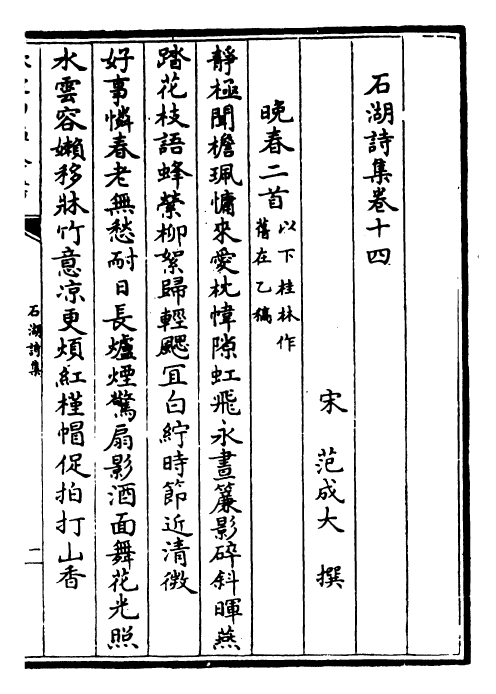 石湖詩集卷十四
宋 范成大 撰
晚春二首 以下桂林作
舊在乙稿
靜極聞檐珮慵來愛枕幃隙虹飛永晝簾影碎斜暉燕
踏花枝語蜂縈柳絮歸輕颸宜白紵時節近清微
好事憐春老無愁耐日長爐煙驚扇影酒面舞花光照
水雲容嬾移牀竹意凉更煩紅槿帽促拍打山香
石湖詩集
二